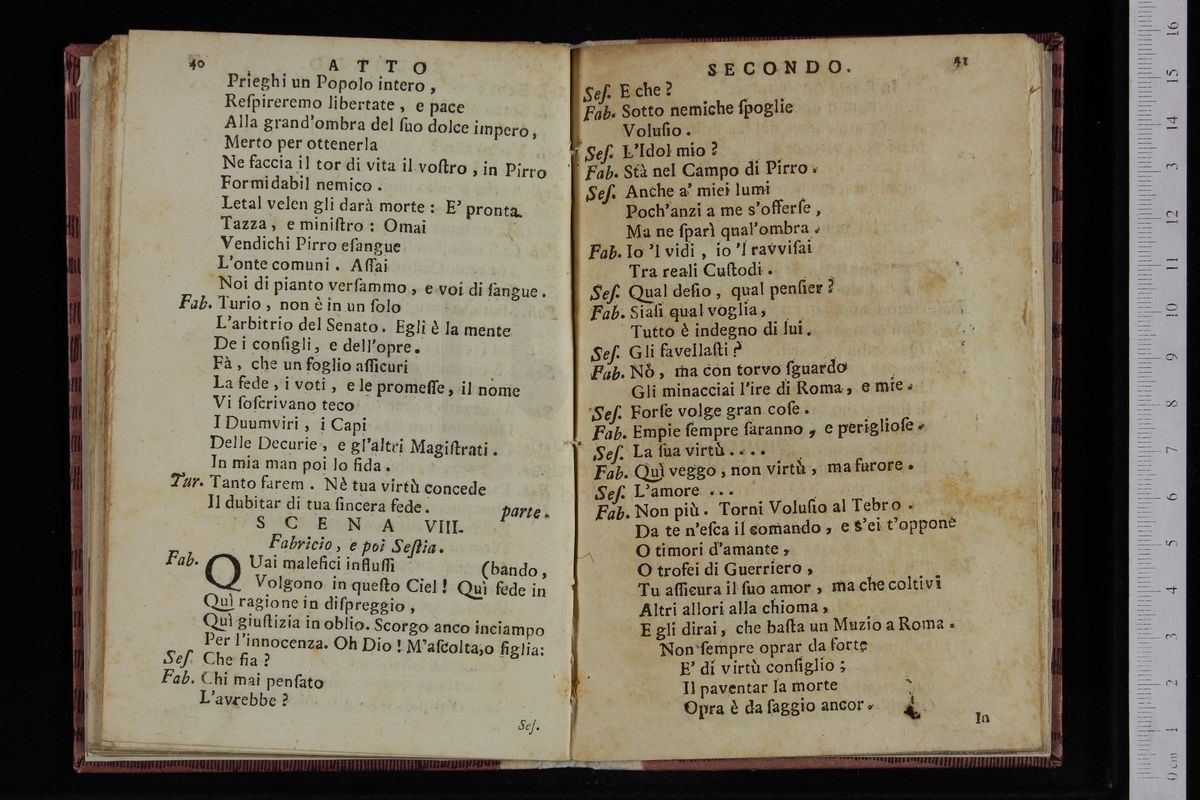 40
ATTO
Prieghi un Popolo intero ,
Reſpireremo libertate , e pace
Alla grand'ombra del ſuo dolce impero ,
Merto per ottenerla
Ne faccia il tor di vita il voſtro , in Pirro
Formidabil nemico .
Letal velen gli darà morte : E' pronta
Tazza , e miniſtro : Omai
Vendichi Pirro eſangue
L'onte comuni . Aſſai
Noi di pianto verſammo , e voi di ſangue .
Fab. Turio , non è in un ſolo
L'arbitrio del Senato . Egli è la mente
De i conſigli , e dell'opre .
Fà , che un foglio aſſicuri
La fede , i voti , e le promeſſe , il nome
Vi ſoſcrivano teco
I Duumviri , i Capi
Delle Decurie , e gl'altri Magiſtrati .
In mia man poi lo fida .
Tur. Tanto farem . Nè tua virtù concede
Il dubitar di tua ſincera fede . parte .
SCENA VIII.
Fabricio , e poi Seſtia .
Fab. QUai malefici influſſi (bando ,
Volgono in queſto Ciel ! Quì fede in
Quì ragione in diſpreggio ,
Quì giuſtizia in oblio . Scorgo anco inciampo
Per l'innocenza . Oh Dio ! M'aſcolta , o figlia :
Seſ. Che fia ?
Fab. Chi mai penſato
L'avrebbe ?
Seſ.
SECONDO.
41
Seſ. E che ?
Fab. Sotto nemiche ſpoglie
Voluſio .
Seſ. L'Idol mio ?
Fab. Stà nel Campo di Pirro .
Seſ. Anche a' miei lumi
Poch'anzi a me s'offerſe ,
Ma ne ſparì qual'ombra .
Fab. Io 'l vidi , io 'l ravviſai
Tra reali Cuſtodi .
Seſ. Qual deſio , qual penſier ?
Fab. Siaſi qual voglia ,
Tutto è indegno di lui .
Seſ. Gli favellaſti ?
Fab. Nò , ma con torvo ſguardo
Gli minacciai l'ire di Roma , e mie .
Seſ. Forſe volge gran coſe .
Fab. Empie ſempre ſaranno , e periglioſe .
Seſ. La ſua virtù . . . .
Fab. Quì veggo , non virtù , ma furore .
Seſ. L'amore . . .
Fab. Non più . Torni Voluſio al Tebro .
Da te n'eſca il comando , e s'ei t'oppone
O timori d'amante ,
O trofei di Guerriero ,
Tu aſſicura il ſuo amor , ma che coltivi
Altri allori alla chioma ,
E gli dirai , che baſta un Muzio a Roma .
Non ſempre oprar da forte
E' di virtù conſiglio ;
Il paventar la morte
Opra è da ſaggio ancor .
In